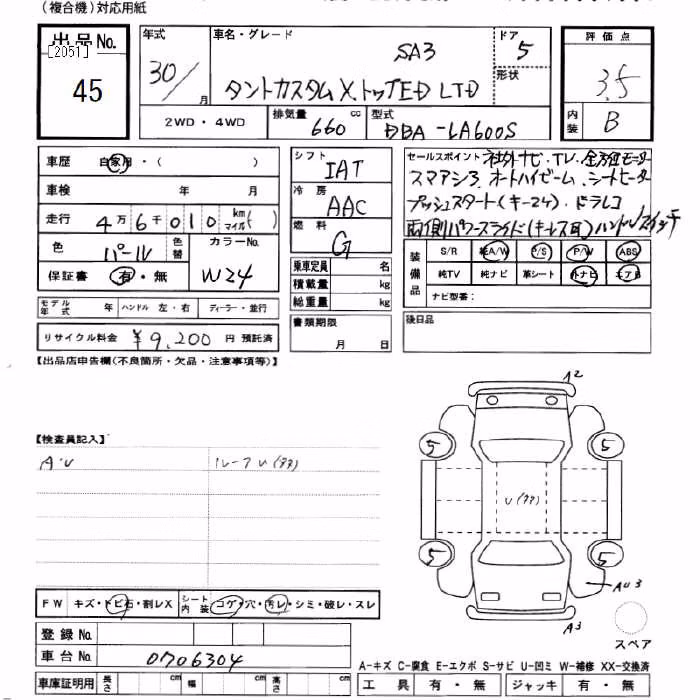 (複合機)対応用紙
出品No.
[2051]
45
年式
30/
月
車名・グレード
SA3
タントカスタムX トップED LTD
ドア
5
形状
評価点
3.5
内装
B
2WD・4WD
排気量
660
cc
型式
DBA-LA600S
車歴
自家用・( )
車検
年 月
走行
4万6千010
km
マイル
( )
色
パール
色替
カラーNo.
W24
保証書
有・無
モデル年式
年
ハンドル 左・右
ディーラー・並行
リサイクル料金
¥9,200
円 預託済
シフト
IAT
冷房
AAC
燃料
G
乗車定員 名
積載量 kg
総重量 kg
書類期限
月 日
セールスポイント
社外ナビ、TV、全方位モニター
スマアシ3、オートハイビーム、シートヒーター
プッシュスタート(キー2ケ)、ドラレコ
両側パワースライド(キーレス可)ハンドルスイッチ
装備品
S/R 純A/W P/S P/W ABS
純TV 純ナビ 革シート 外ナビ エアB
ナビ型番:
後日品
【出品店申告欄(不良箇所・欠品・注意事項等)】
【検査員記入】
A・U
ルーフU(タタ)
A2
5
5
U(タタ)
5
5
AU3
A3
スペア
FW
キズ・トビ石・割レX
シート内装
コゲ・穴・汚レ・シミ・破レ・スレ
登録No.
車台No.
0706304
車庫証明用
長さ cm
幅 cm
高さ cm
A-キズ C-腐食 E-エクボ S-サビ U-凹ミ W-補修 XX-交換済
工具 有・無 ジャッキ 有・無